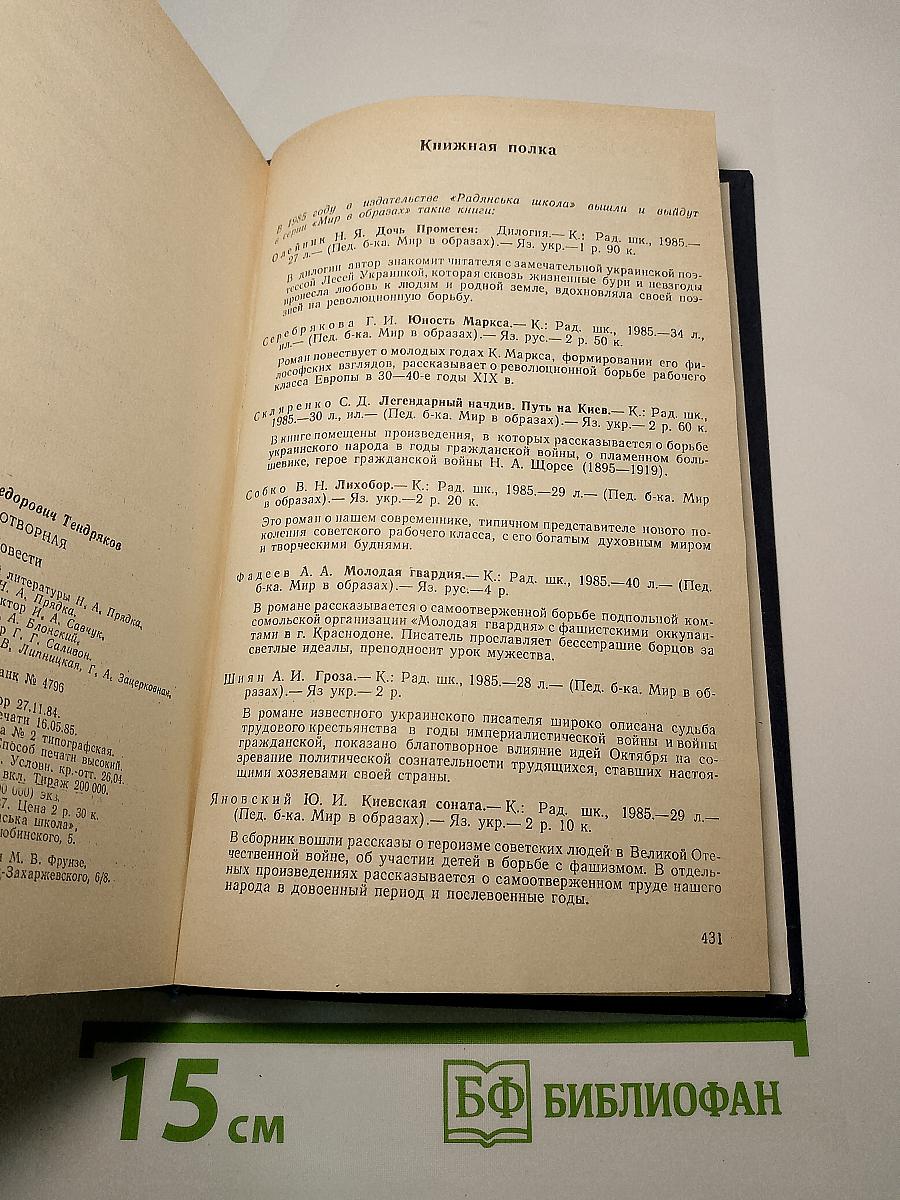 едорович Тендряков
ОТВОРНАЯ
овести
й литературы Н. А. Прядка,
Н. А. Прядка,
ктор И. А. Савчук,
А. Блонский,
р Г. Г. Саливон,
В. Липницкая, Г. А. Зацерковная,
анк № 4796
ор 27.11.84.
ечати 16.05.85.
а № 2 типографская.
Способ печати высокий.
Условн. кр.-отт. 26,04.
вкл. Тираж 200 000.
0 000) экз.
7. Цена 2 р. 30 к.
нська школа»,
юбинского, 5.
и М. В. Фрунзе,
-Захаржевского, 6/8.
Книжная полка
В 1985 году в издательстве «Радянська школа» вышли и выйдут
в серии «Мир в образах» такие книги:
Олейник Н. Я. Дочь Прометея: Дилогия.— К.: Рад. шк., 1985.—
27 л.— (Пед. б-ка. Мир в образах).— Яз. укр.—1 р. 90 к.
В дилогии автор знакомит читателя с замечательной украинской поэ-
тессой Лесей Украинкой, которая сквозь жизненные бури и невзгоды
пронесла любовь к людям и родной земле, вдохновляла своей поэ-
зией на революционную борьбу.
Серебрякова Г. И. Юность Маркса.— К.: Рад. шк., 1985.—34 л.,
ил.— (Пед. б-ка. Мир в образах).— Яз. рус.— 2 р. 50 к.
Роман повествует о молодых годах К. Маркса, формировании его фи-
лософских взглядов, рассказывает о революционной борьбе рабочего
класса Европы в 30—40-е годы XIX в.
Скляренко С. Д. Легендарный начдив. Путь на Киев.— К.: Рад. шк.,
1985.—30 л., ил.— (Пед. б-ка. Мир в образах).— Яз. укр.— 2 р. 60 к.
В книге помещены произведения, в которых рассказывается о борьбе
украинского народа в годы гражданской войны, о пламенном боль-
шевике, герое гражданской войны Н. А. Щорсе (1895—1919).
Собко В. Н. Лихобор.— К.: Рад. шк., 1985.—29 л.— (Пед. б-ка. Мир
в образах).— Яз. укр.—2 р. 20 к.
Это роман о нашем современнике, типичном представителе нового по-
коления советского рабочего класса, с его богатым духовным миром
и творческими буднями.
Фадеев А. А. Молодая гвардия.— К.: Рад. шк., 1985.—40 л.— (Пед.
б-ка. Мир в образах).— Яз. рус.—4 р.
В романе рассказывается о самоотверженной борьбе подпольной ком-
сомольской организации «Молодая гвардия» с фашистскими оккупан-
тами в г. Краснодоне. Писатель прославляет бессстрашие борцов за
светлые идеалы, преподносит урок мужества.
Шиян А. И. Гроза.— К.: Рад. шк., 1985.—28 л.— (Пед. б-ка. Мир в об-
разах).— Яз укр.— 2 р.
В романе известного украинского писателя широко описана судьба
трудового крестьянства в годы империалистической войны и войны
гражданской, показано благотворное влияние идей Октября на со-
зревание политической сознательности трудящихся, ставших настоя-
щими хозяевами своей страны.
Яновский Ю. И. Киевская соната.— К.: Рад. шк., 1985.—29 л.—
(Пед. б-ка. Мир в образах).— Яз. укр.— 2 р. 10 к.
В сборник вошли рассказы о героизме советских людей в Великой Оте-
чественной войне, об участии детей в борьбе с фашизмом. В отдель-
ных произведениях рассказывается о самоотверженном труде нашего
народа в довоенный период и послевоенные годы.
431
15 см
БФ БИБЛИОФАН